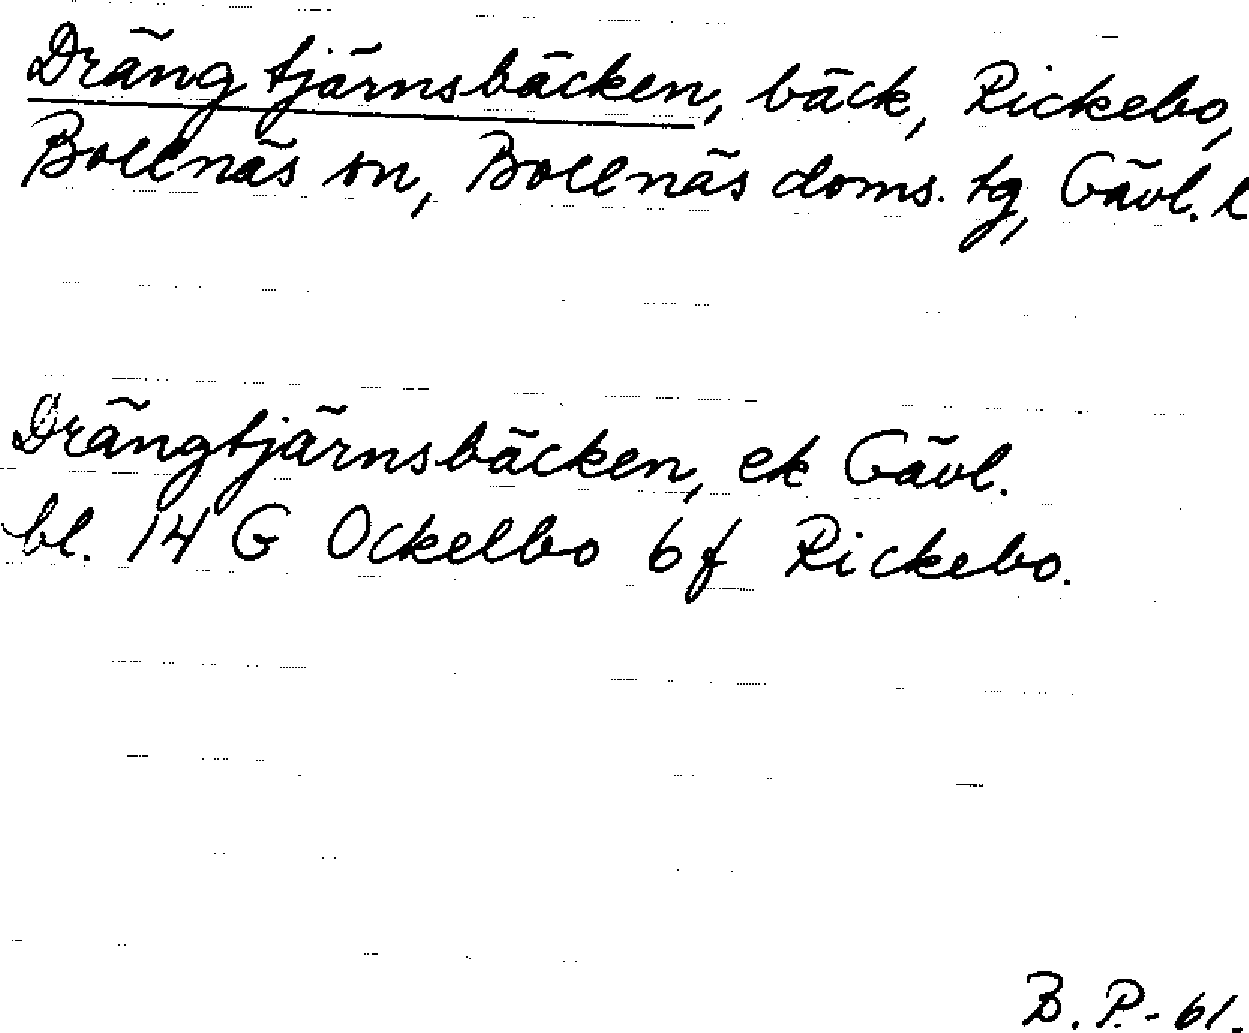 Drängtjärnsbäcken, bäck, Rickebo,
Bollnäs sn, Bollnäs doms. tg, Gävl. l
Drängtjärnsbäcken, ek Gävl.
bl. 14 G Ockelbo 6 f Rickebo.
B. P. - 61.